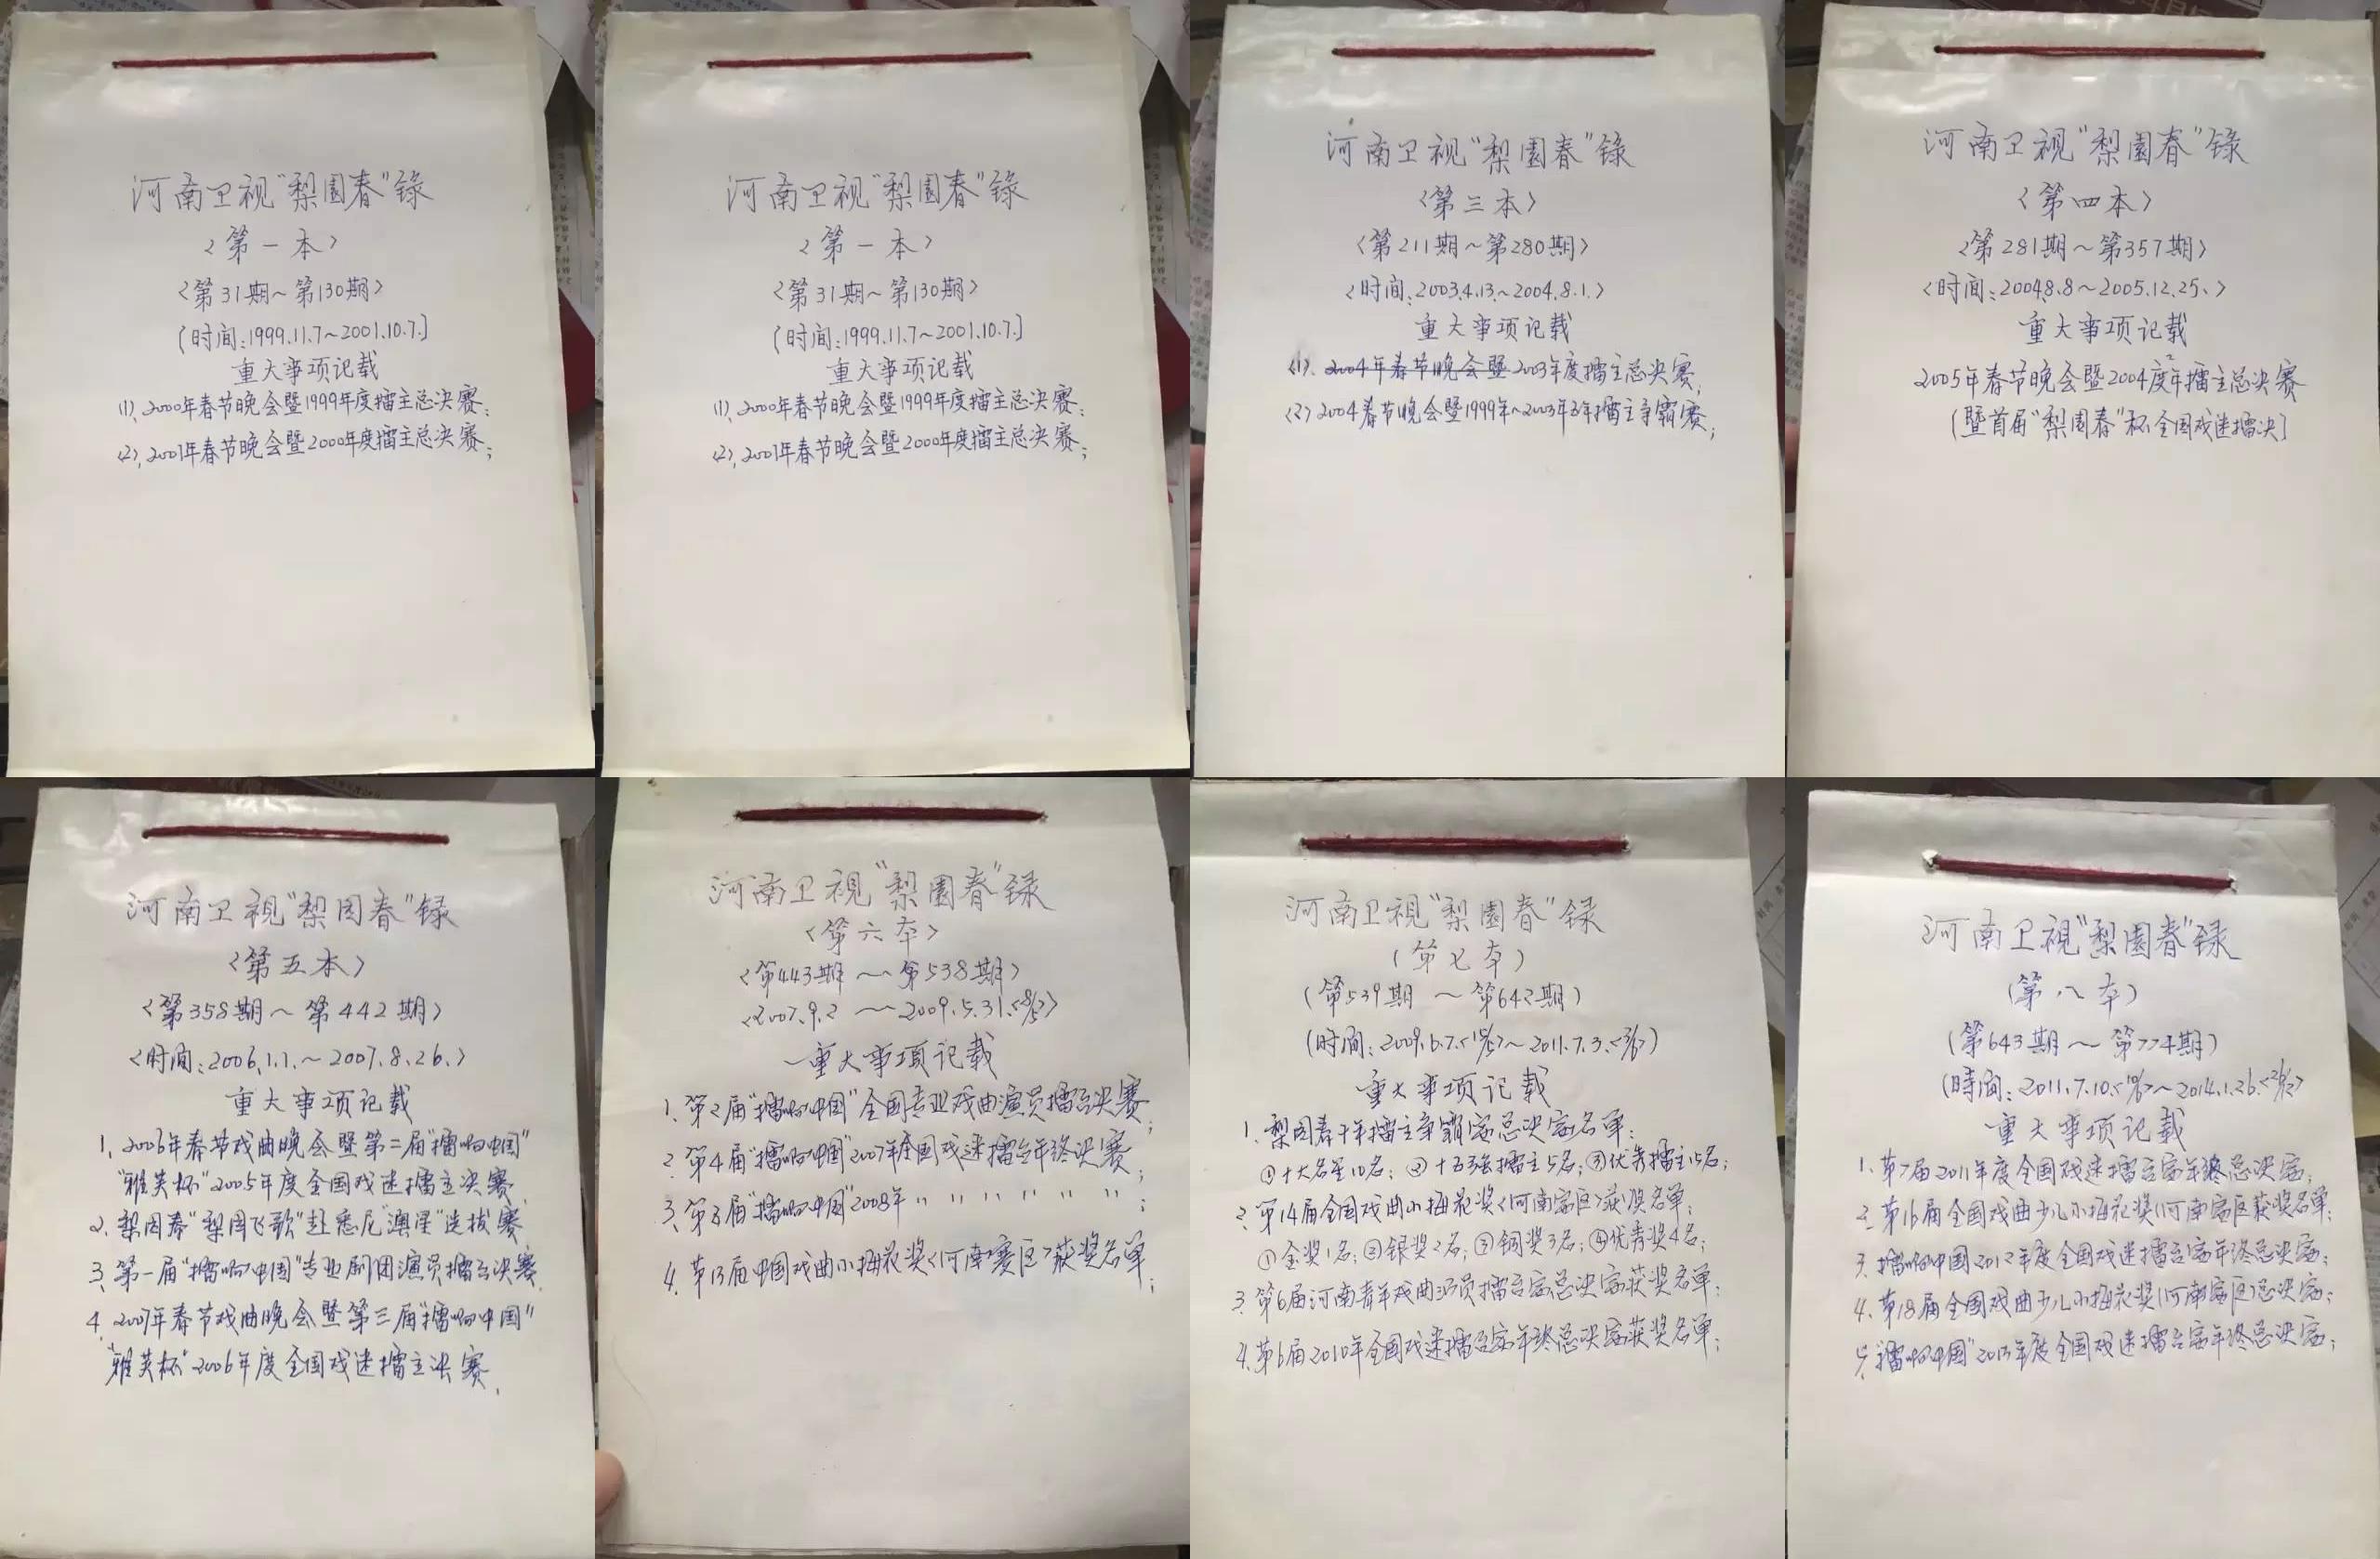 河南卫视“梨園春”録
<第一本>
<第31期~第130期>
[时间:1999.11.7~2001.10.7.]
重大事项记载
(1)、2000年春节晚会暨1999年度擂主总决赛;
(2)、2001年春节晚会暨2000年度擂主总决赛;
河南卫视“梨園春”録
<第一本>
<第31期~第130期>
[时间:1999.11.7~2001.10.7.]
重大事项记载
(1)、2000年春节晚会暨1999年度擂主总决赛;
(2)、2001年春节晚会暨2000年度擂主总决赛;
河南卫视“梨園春”録
<第三本>
<第211期~第280期>
<时间:2003.4.13.~2004.8.1.>
重大事项记载
(1)、2004年春节晚会暨2003年度擂主总决赛;
(2)2004春节晚会暨1999年~2003年5年擂主争霸赛;
河南卫视“梨園春”録
<第四本>
<第281期~第357期>
<时间:2004.8.8~2005.12.25.>
重大事项记载
2005年春节晚会暨2004度年擂主总决赛
[暨首届“梨園春”杯全国戏迷擂决]
河南卫视“梨园春”録
<第五本>
<第358期~第442期>
<时间:2006.1.1.~2007.8.26.>
重大事项记载
1、2006年春节戏曲晚会暨第二届“擂响中国”
“雅芙杯”2005年度全国戏迷擂主决赛
2、梨园春“梨园飞歌”赴悉尼“澳星”选拔赛
3、第一届“擂响中国”专业剧团演员擂台决赛
4、2007年春节戏曲晚会暨第三届“擂响中国”
“雅芙杯”2006年度全国戏迷擂主决赛
河南卫视“梨園春”録
<第六本>
<第443期~第538期>
<2007.9.2~2009.5.31.<8/5>>
重大事项记载
1、第2届“擂响中国”全国专业戏曲演员擂台决赛;
2、第4届“擂响中国”2007年全国戏迷擂台年终决赛;
3、第5届“擂响中国”2008年 〃 〃 〃 〃 〃 〃 〃;
4、第13届中国戏曲小梅花奖<河南赛区>获奖名单;
河南卫视“梨園春”録
(第七本)
(第539期~第642期)
(时间:2009.6.7.<15/5>~2011.7.3.<3/6>)
重大事项记载
1、梨园春十年擂主争霸赛总决赛名单:
①十大名星10名;②十五强擂主5名;③优秀擂主15名;
2、第14届全国戏曲小梅花奖<河南赛区>获奖名单:
①金奖1名;②银奖2名;③铜奖3名;④优秀奖4名;
3、第6届河南青年戏曲演员擂台赛总决赛获奖名单;
4、第6届2010年全国戏迷擂台赛年终总决赛获奖名单;
河南卫视“梨園春”録
(第八本)
(第643期~第774期)
(時间:2011.7.10.<10/6>~2014.1.26.<26/12>
重大事项记载
1、第7届2011年度全国戏迷擂台赛年终总决赛;
2、第16届全国戏曲少儿小梅花奖(河南赛区获奖名单;
3、擂响中国2012年度全国戏迷擂台赛年终总决赛;
4、第18届全国戏曲少儿小梅花奖(河南赛区)总决赛;
5、“擂响中国”2013年度全国戏迷擂台赛年终总决赛;